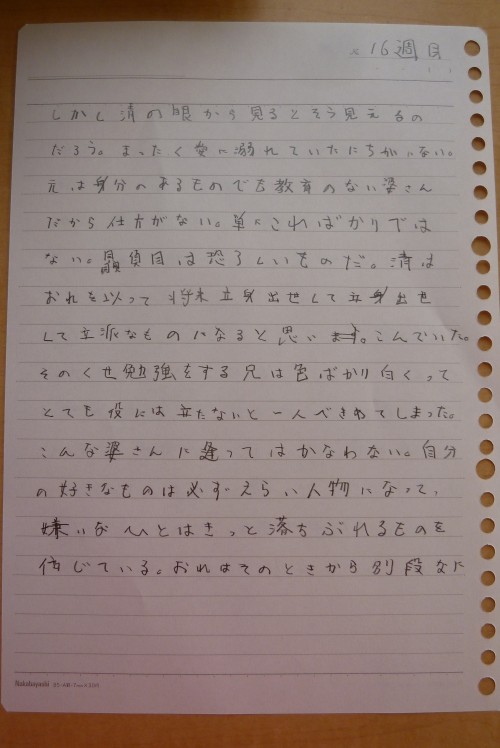 ×16週目
しかし清の眼から見るとそう見えるの
だろう。まったく愛に溺れていたにちがいない。
元は身分のあるものでも教育のない婆さん
だから仕方がない。単にこればかりでは
ない。贔負目は恐ろしいものだ。清は
おれを以って将来立身出世して立身出世
して立派なものになると思います。こんでいた。
そのくせ勉強をする兄は色ばかり白くって
とても役には立たないと一人できめてしまった。
こんな婆さんに逢ってはかなわない。自分
の好きなものは必ずえらい人物になって、
嫌いなひとはきっと落ちぶれるものを
信じている。おれはそのときから別段なに
Nakabayashi